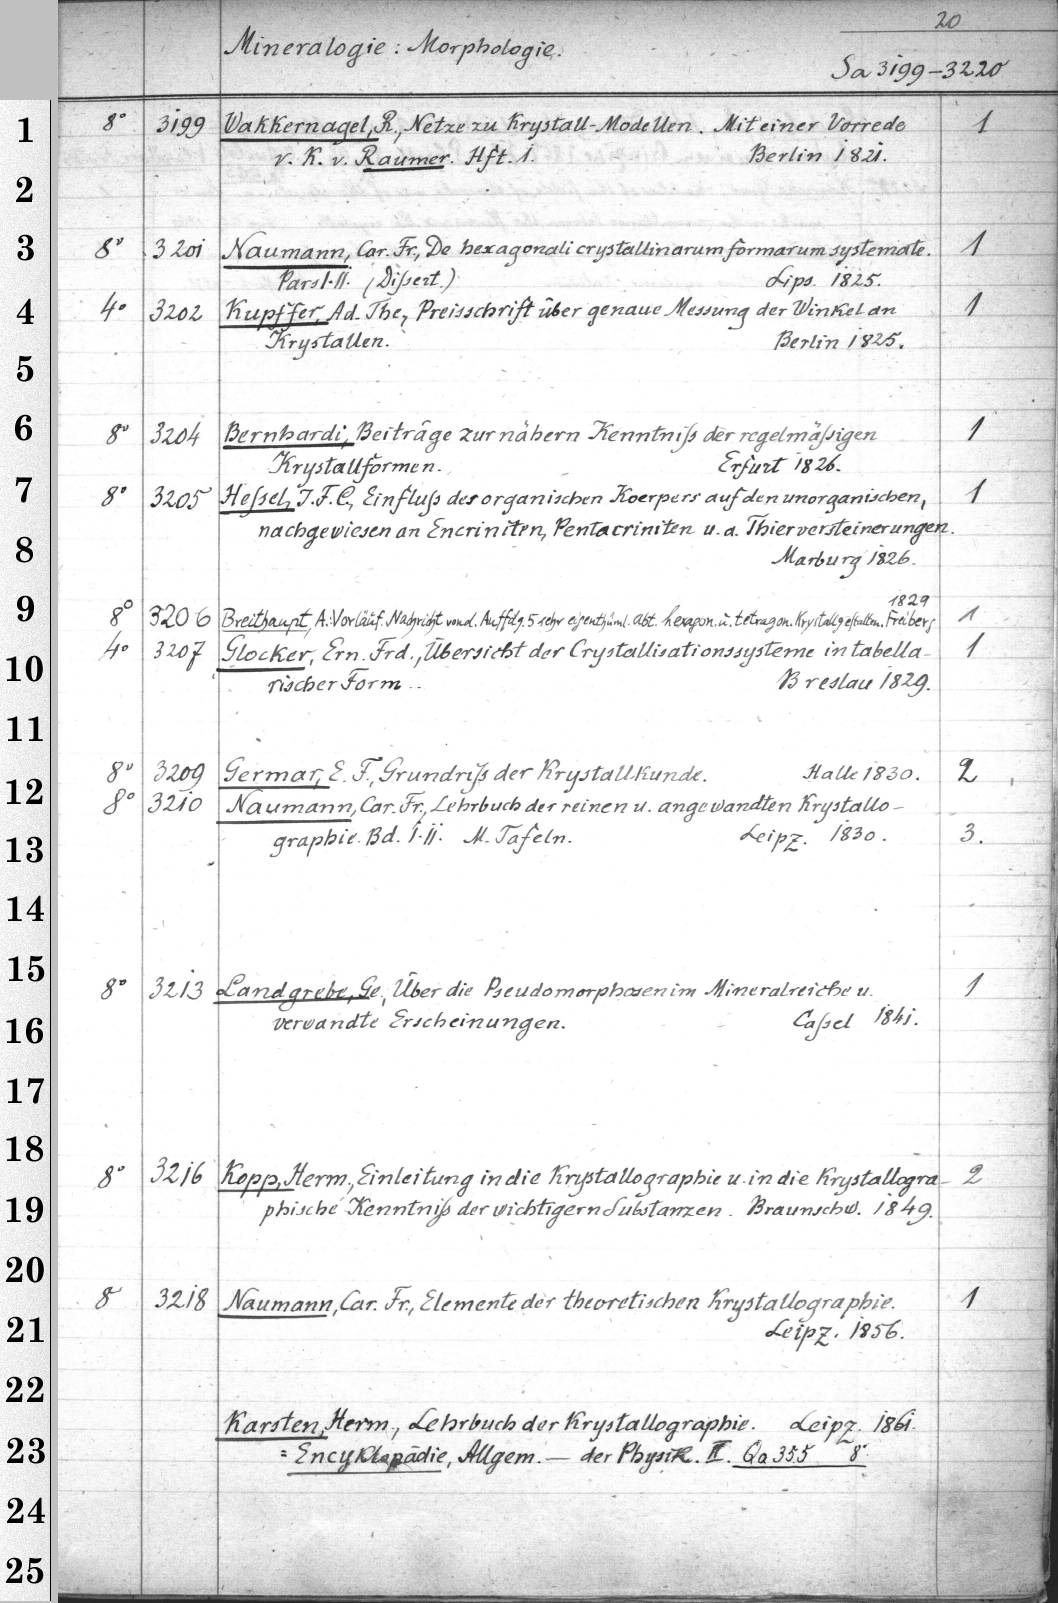 20
Mineralogie: Morphologie.
Sa 3199-3220
1 8° 3199 Wakkernagel, R., Netze zu Krystall-Modellen. Mit einer Vorrede 1
v. K. v. Raumer. Hft. 1. Berlin 1821.
2
3 8° 3201 Naumann, Car. Fr., De hexagonali crystallinarum formarum systemate. 1
Pars I.II. (Dissert.) Lips. 1825.
4 4° 3202 Kupffer, Ad. The., Preisschrift über genaue Messung der Winkel an 1
Krystallen. Berlin 1825.
5
6 8° 3204 Bernhardi, Beiträge zur nähern Kenntniſs der regelmäſsigen 1
Krystallformen. Erfurt 1826.
7 8° 3205 Heſsel, J.F.C., Einfluſs des organischen Koerpers auf den unorganischen, 1
nachgewiesen an Encriniten, Pentacriniten u. a. Thierversteinerungen.
8 Marburg 1826.
1829
9 8° 3206 Breithaupt, A.: Vorläuf. Nachricht von d. Auffdg. 5 sehr eigenthüml. Abt. hexagon. u. tetragon. Krystallgestalten. Freiberg 1
4° 3207 Glocker, Ern. Frd., Übersicht der Crystallisationssysteme in tabella- 1
10 rischer Form.. Breslau 1829.
11
8° 3209 Germar, E. F., Grundriſs der Krystallkunde. Halle 1830. 2
12 8° 3210 Naumann, Car. Fr., Lehrbuch der reinen u. angewandten Krystallo-
13 graphie. Bd. I.II. M. Tafeln. Leipz. 1830. 3.
14
15 8° 3213 Landgrebe, Ge., Über die Pseudomorphosen im Mineralreiche u. 1
16 verwandte Erscheinungen. Caſsel 1841.
17
18 8° 3216 Kopp, Herm., Einleitung in die Krystallographie u. in die Krystallogra- 2
19 phische Kenntniſs der wichtigern Substanzen. Braunschw. 1849.
20
8° 3218 Naumann, Car. Fr., Elemente der theoretischen Krystallographie. 1
21 Leipz. 1856.
22
Karsten, Herm., Lehrbuch der Krystallographie. Leipz. 1861.
23 = Encyklopädie, Allgem. — der Physik. II. Qa 355 8°
24
25